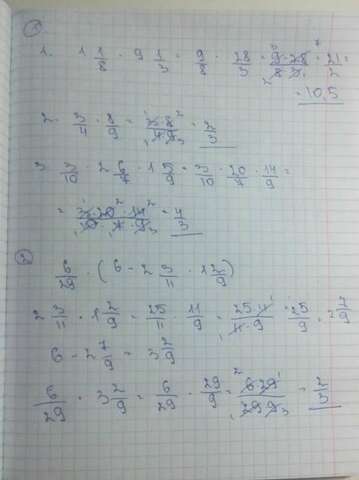 1)
1. 1 1/8 · 9 1/3 = 9/8 · 28/3 = 9·28/8·3 = 21/2
= 10,5
2. 3/4 · 8/9 = 3·8/4·9 = 2/3
3. 3/10 · 2 6/7 · 1 5/9 = 3/10 · 20/7 · 14/9 =
= 3·20·14/10·7·9 = 4/3
2)
6/29 · (6 - 2 3/11 · 1 2/9)
2 3/11 · 1 2/9 = 25/11 · 11/9 = 25·11/11·9 = 25/9 = 2 7/9
6 - 2 7/9 = 3 2/9
6/29 · 3 2/9 = 6/29 · 29/9 = 6·29/29·9 = 2/3